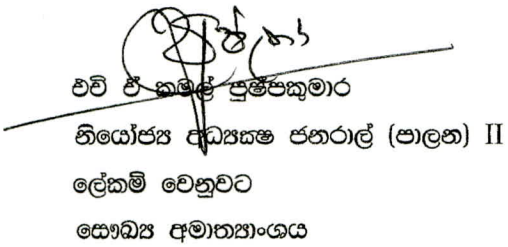 එච් ඒ කමල් පුෂ්පකුමාර
නියෝජ්‍ය අධ්‍යක්ෂ ජනරාල් (පාලන) II
ලේකම් වෙනුවට
සෞඛ්‍ය අමාත්‍යාංශය